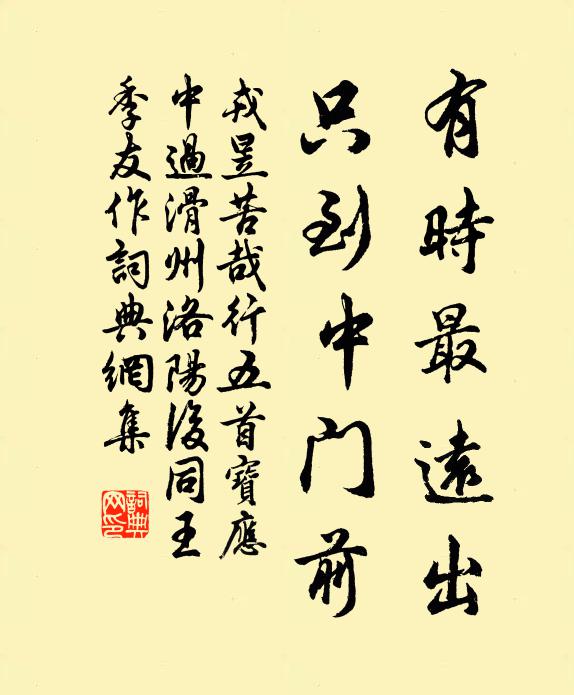 有時最遠出
只到中门前
戎昱苦哉行五首寶應
中過滑州洛陽後同王
季友作詞典網集
詞典
网印